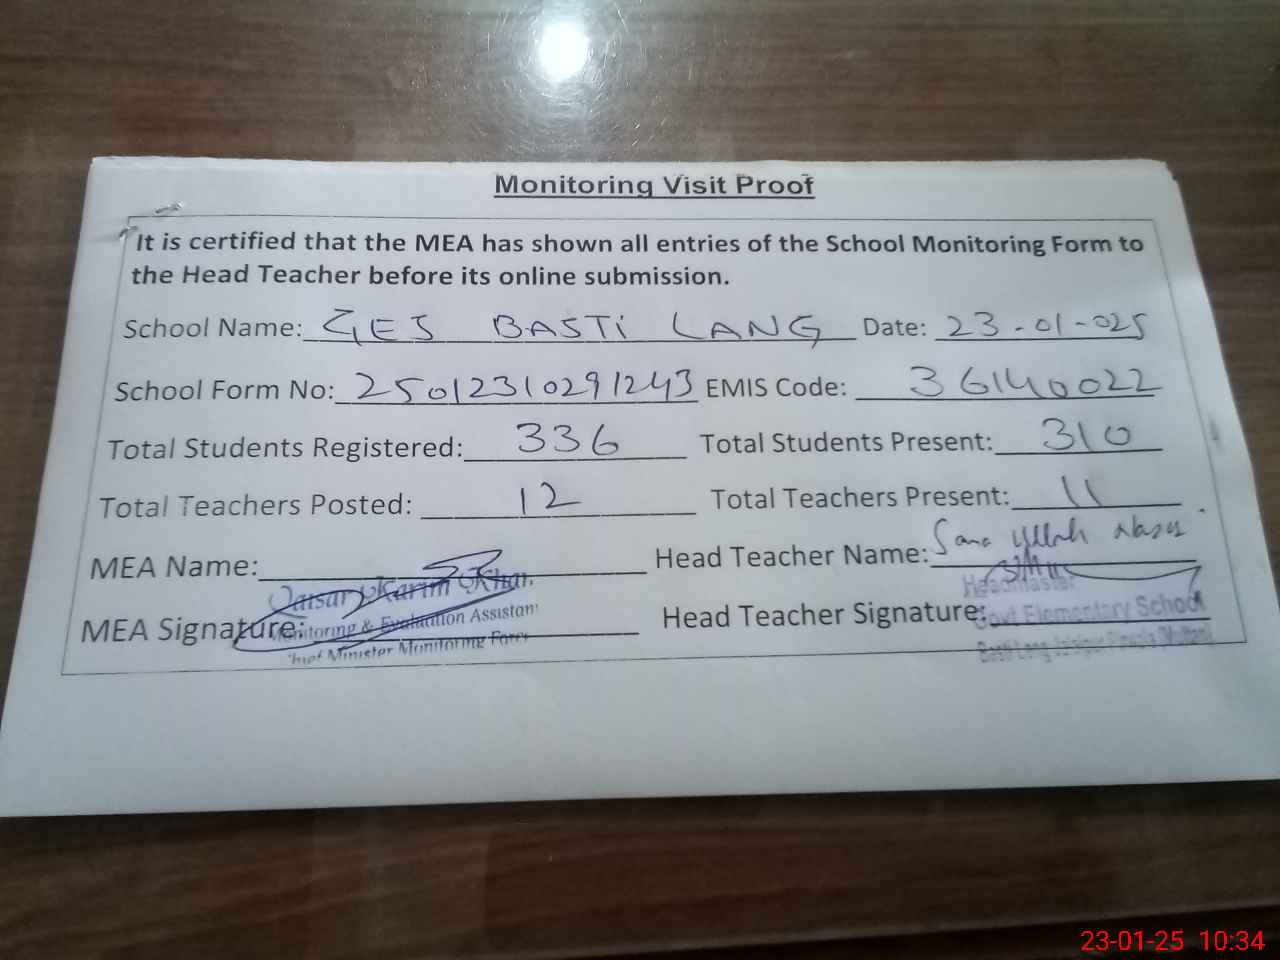 Monitoring Visit Proof
It is certified that the MEA has shown all entries of the School Monitoring Form to
the Head Teacher before its online submission.
School Name: GES BASTI LANG Date: 23-01-025
School Form No: 25012310291243 EMIS Code: 36140022
Total Students Registered: 336 Total Students Present: 310
Total Teachers Posted: 12 Total Teachers Present: 11
MEA Name: Head Teacher Name: Sana Ullah
Qaisar Karim Khan
Headmaster
MEA Signature: Head Teacher Signature:
Monitoring & Evaluation Assistant
Govt Elementary School
Chief Minister Monitoring Force
Basti Lang
23-01-25 10:34